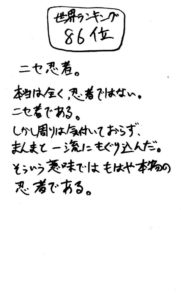 世界ランキング
86位
ニセ忍者。
本当は全く、忍者ではない。
ニセ者である。
しかし周りは気付いておらず、
まんまと一流にもぐり込んだ。
そういう意味ではもはや本物の
忍者である。